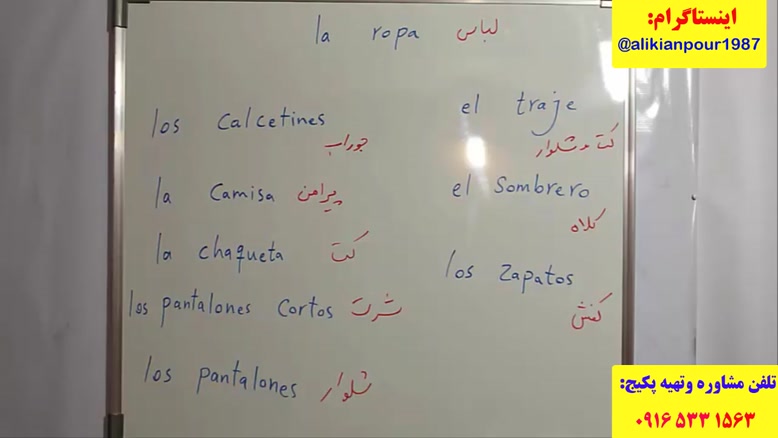 la ropa لباس
los calcetines
جوراب
la camisa پیراهن
la chaqueta کت
los pantalones cortos شرت
los pantalones شلوار
el traje
کت و شلوار
el sombrero
کلاه
los zapatos
کفش
اینستاگرام:
@alikianpour1987
تلفن مشاوره وتهیه پکیج:
۰۹۱۶ ۵۳۳ ۱۵۶۳